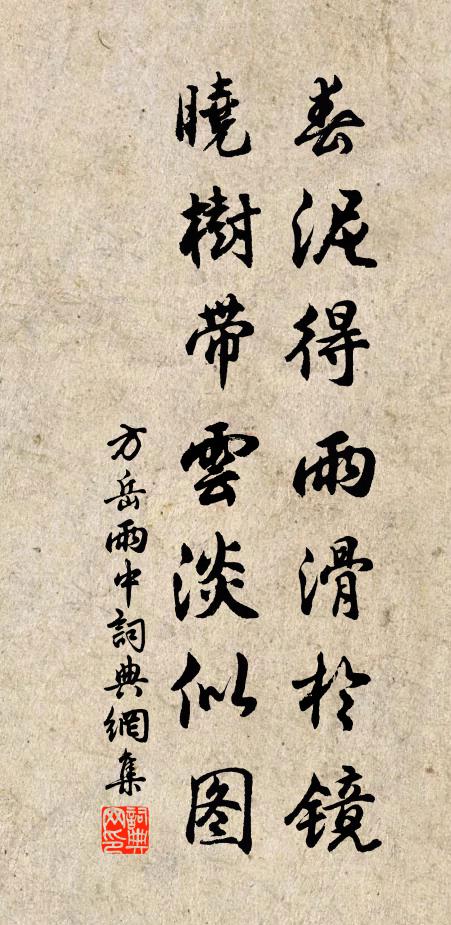 春泥得雨滑於镜
曉樹帶雲淡似图
方岳雨中詞典網集
詞典
网印